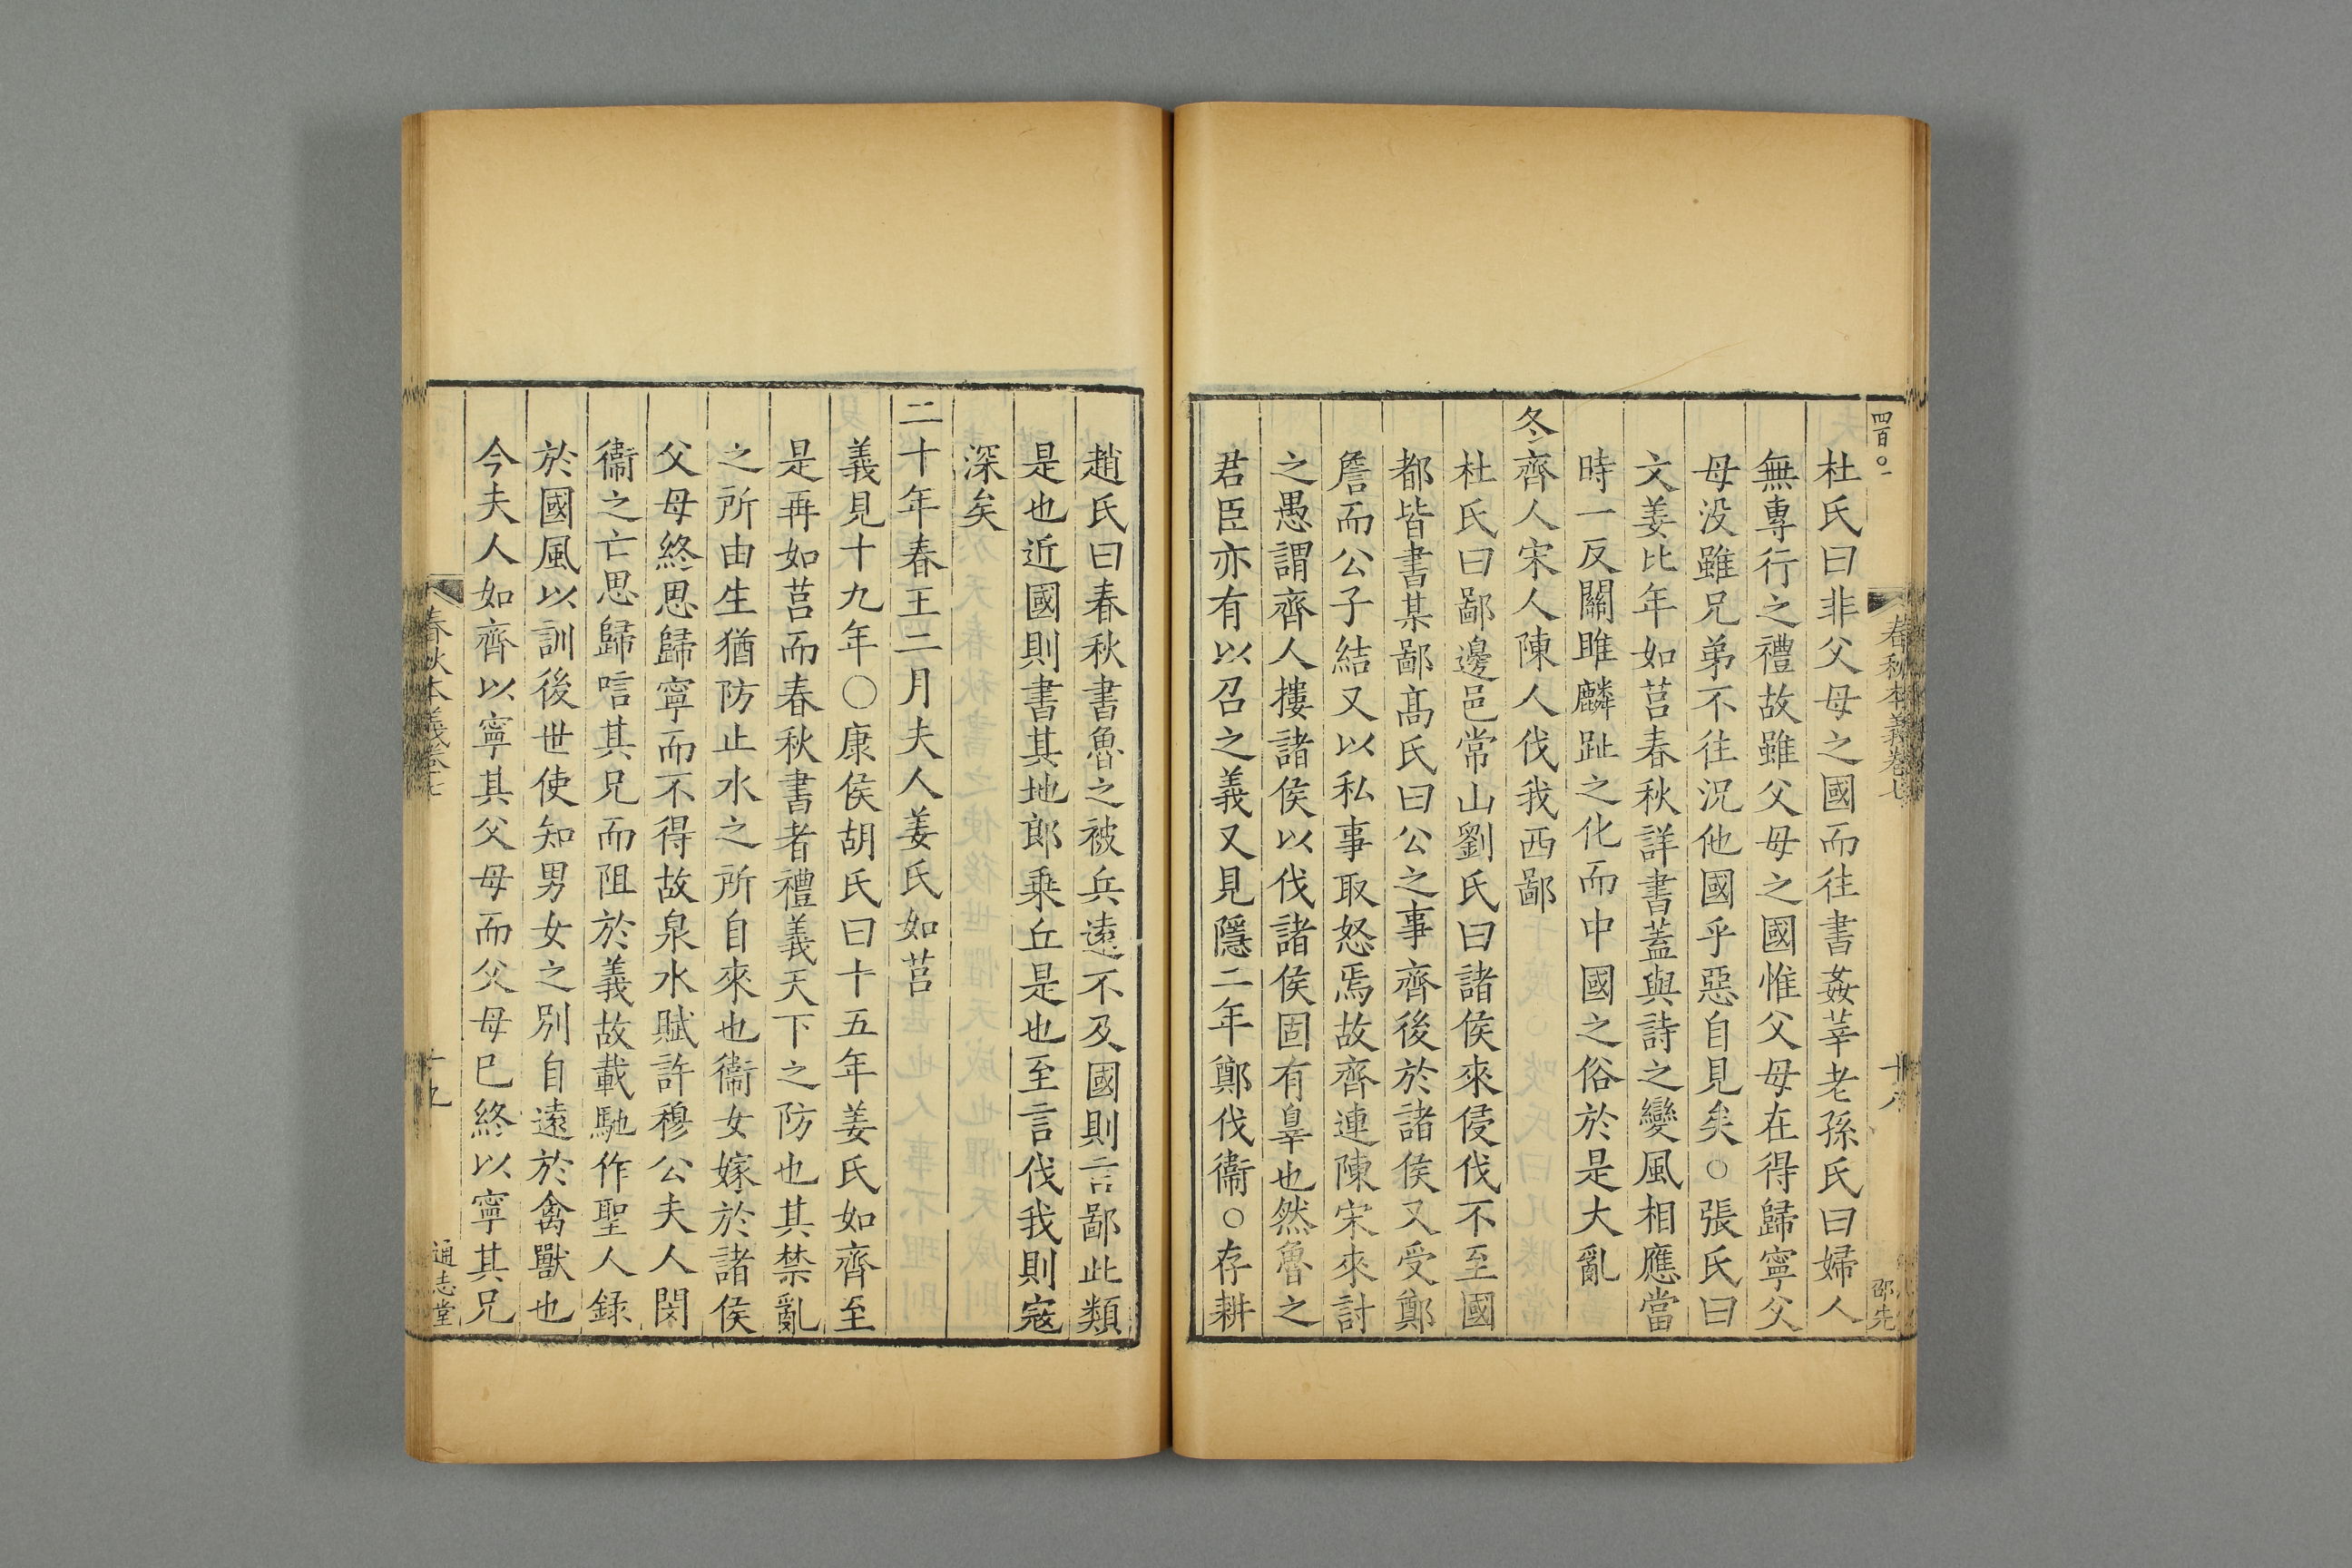 四百〇一
春秋本義卷七
十八
邵先
杜氏曰非父母之國而往書姦莘老孫氏曰婦人
無專行之禮故雖父母之國惟父母在得歸寧父
母没雖兄弟不往況他國乎惡自見矣○張氏曰
文姜比年如莒春秋詳書蓋與詩之變風相應當
時一反關雎麟趾之化而中國之俗於是大亂
冬齊人宋人陳人伐我西鄙
杜氏曰鄙邊邑常山劉氏曰諸侯來侵伐不至國
都皆書某鄙髙氏曰公之事齊後於諸侯又受鄭
詹而公子結又以私事取怒焉故齊連陳宋來討
之愚謂齊人摟諸侯以伐諸侯固有辠也然魯之
君臣亦有以召之義又見隱二年鄭伐衞○存耕
趙氏曰春秋書魯之被兵遠不及國則言鄙此類
是也近國則書其地郎乗丘是也至言伐我則寇
深矣
二十年春王二月夫人姜氏如莒
義見十九年○康侯胡氏曰十五年姜氏如齊至
是再如莒而春秋書者禮義天下之防也其禁亂
之所由生猶防止水之所自來也衞女嫁於諸侯
父母終思歸寧而不得故泉水賦許穆公夫人閔
衞之亡思歸唁其兄而阻於義故載馳作聖人録
於國風以訓後世使知男女之別自遠於禽獸也
今夫人如齊以寧其父母而父母已終以寧其兄
春秋本義卷七
十九
通志堂